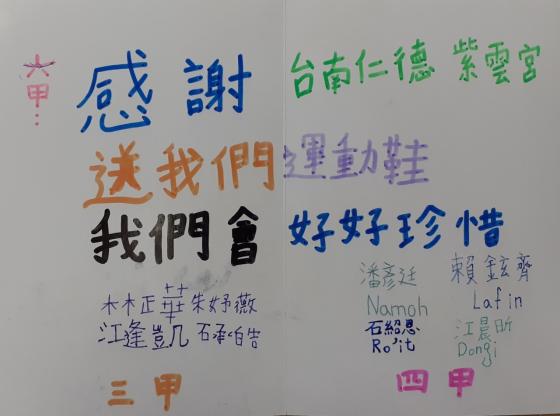 六甲：
感謝 台南仁德 紫雲宮
送我們運動鞋
我們會好好珍惜
林正華 朱妤薇
江逢凱
潘彥廷 賴鉉齊
Namoh Lafin
石紹恩 江晨昕
Ro'it Dongi
三甲 四甲